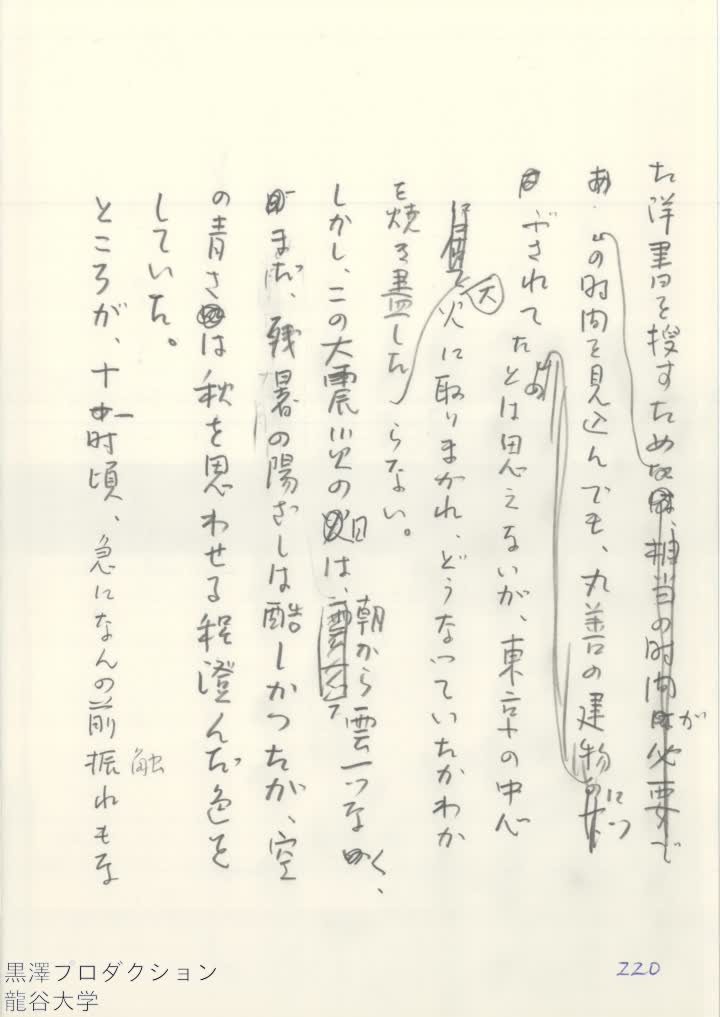 た洋書を捜すための時間を見込んでも、丸善の建物につ
ぶされてたとは思えないが、東京の中心
を焼き盡した大火に取りまかれ、どうなっていたかわか
らない。
しかし、この大震災の日は、朝から雲一つなく、
まだ、残暑の陽ざしは酷しかったが、空
の青さは秋を思わせる程澄んだ色を
していた。
ところが、十一時頃、急になんの前触れもな
220
黒澤プロダクション
龍谷大学